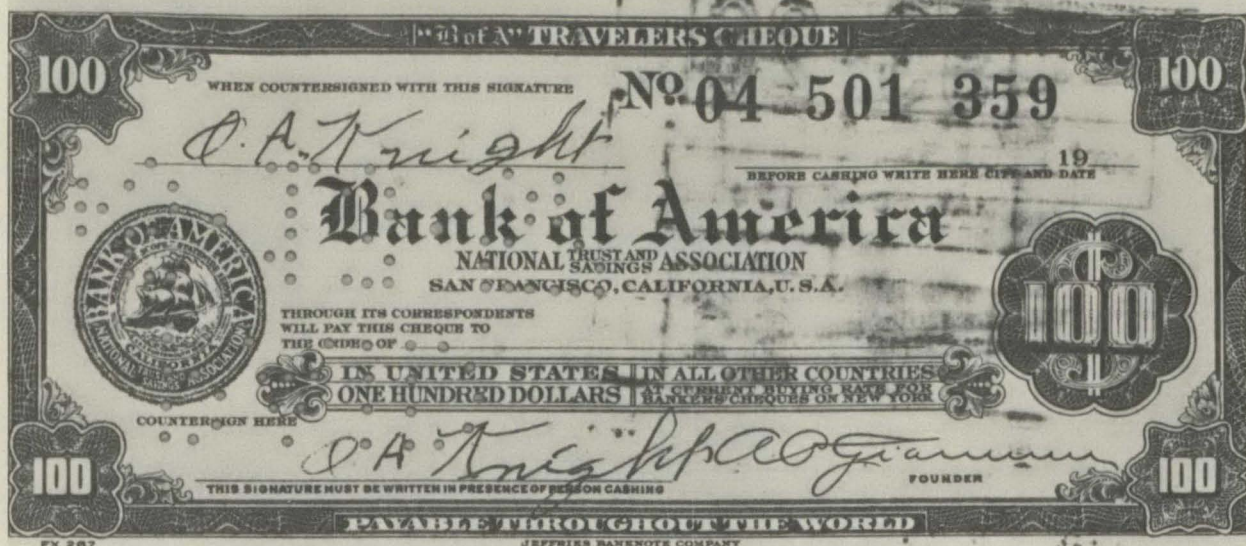 "B of A" TRAVELERS CHEQUE
100
100
WHEN COUNTERSIGNED WITH THIS SIGNATURE
No 04 501 359
O. A. Knight
19
BEFORE CASHING WRITE HERE CITY AND DATE
Bank of America
NATIONAL TRUST AND SAVINGS ASSOCIATION
SAN FRANCISCO, CALIFORNIA, U. S. A.
BANK OF AMERICA
CALIFORNIA
NATIONAL TRUST AND SAVINGS ASSOCIATION
100
THROUGH ITS CORRESPONDENTS
WILL PAY THIS CHEQUE TO
THE ORDER OF
IN UNITED STATES
ONE HUNDRED DOLLARS
IN ALL OTHER COUNTRIES
AT CURRENT BUYING RATE FOR
BANKERS CHEQUES ON NEW YORK
COUNTERSIGN HERE
O A Knight
A P Giannini
FOUNDER
THIS SIGNATURE MUST BE WRITTEN IN PRESENCE OF PERSON CASHING
100
100
PAYABLE THROUGHOUT THE WORLD
JEFFRIES BANKNOTE COMPANY